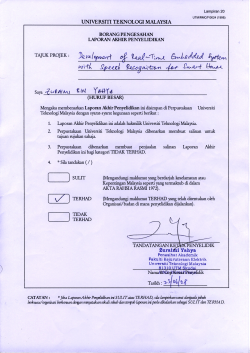 Lampiran 20
UNIVERSITI TEKNOLOGI MALAYSIA
BORANG PENGESAHAN
LAPORAN AKHIR PENYELIDIKAN
TAJUK PROJEK : Development of Real-Time Embedded System
with Speech Recognition for Smart House
Saya ZURAIMI BIN YAHYA
(HURUF BESAR)
Mengaku membenarkan Laporan Akhir Penyelidikan ini disimpan di Perpustakaan Universiti
Teknologi Malaysia dengan syarat-syarat kegunaan seperti berikut :
1. Laporan Akhir Penyelidikan ini adalah hakmilik Universiti Teknologi Malaysia.
2. Perpustakaan Universiti Teknologi Malaysia dibenarkan membuat salinan untuk
tujuan rujukan sahaja.
3. Perpustakaan dibenarkan membuat penjualan salinan Laporan Akhir
Penyelidikan ini bagi kategori TIDAK TERHAD.
4. * Sila tandakan ( / )
SULIT (Mengandungi maklumat yang berdarjah keselamatan atau
Kepentingan Malaysia seperti yang termaktub di dalam
AKTA RAHSIA RASMI 1972).
TERHAD (Mengandungi maklumat TERHAD yang telah ditentukan oleh
Organisasi/badan di mana penyelidikan dijalankan).
TIDAK
TERHAD
TANDATANGAN KETUA PENYELIDIK
Zuraimi Yahya
Pensyarah Akademik
Fakulti Kejuruteraan Elektrik
Universiti Teknologi Malaysia
81310 UTM Skudai
Nama & Cop Ketua Penyelidik
Tarikh :
CATATAN : * Jika Laporan Akhir Penyelidikan ini SULIT atau TERHAD, sila lampirkan surat daripada pihak
berkuasa/organisasi berkenaan dengan menyatakan sekali sebab dan tempoh laporan ini perlu dikelaskan sebagai SULIT dan TERHAD.